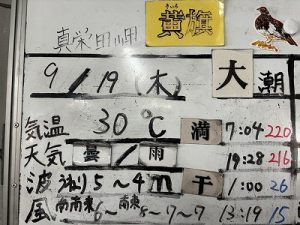 きいろ
黄旗
真栄田岬
9/19(木) 大潮
気温 30℃ 満 7:04 220
天気 曇/雨 19:28 216
波 うねり5~4m 干 1:00 26
風 南南東6~ 南東8~7~7 13:19 15